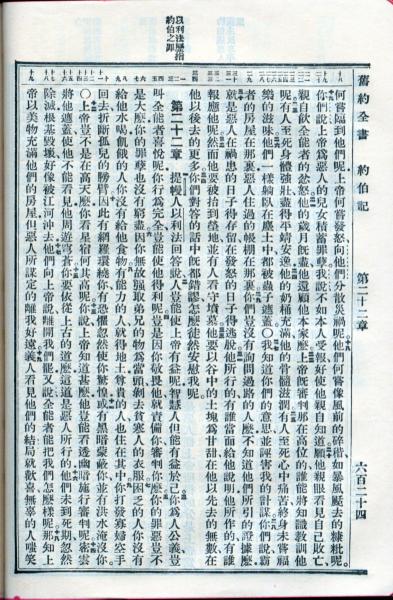 舊約全書 約伯記 第二十二章 六百二十四
何嘗臨到他們呢上帝何嘗發怒向他們分散災禍呢他們何嘗像風前的碎稭如暴風颳去的糠粃呢
你們說上帝爲惡人的兒女積蓄罪孽我說不如本人受報好使他親自知道願他親眼看見自己敗亡
親自飲全能者的忿怒他的歲月旣盡他還顧他本家麼上帝旣審判那在高位的誰能將知識教訓他
呢有人至死身體強壯盡得平靖安逸他的奶桶充滿他的骨髓滋潤有人至死心中痛苦終身未嘗福
樂的滋味他們一樣躺臥在塵土中都被蟲子遮蓋○我知道你們的意思並誣害我的計謀你們說霸
者的房屋在那裏惡人住過的帳棚在那裏你們豈沒有詢問過路的人麼不知道他們所引的證據麼
就是惡人在禍患的日子得存留在發怒的日子得逃脫他所行的有誰當面給他說明他所作的有誰
報應他呢然而他要被抬到塋地並有人看守墳墓他要以谷中的土塊爲甘甜在他以先去的無數在
他以後去的更多你們對答的話中旣都錯謬怎麼徒然安慰我呢
以利法歷指
約伯之罪
第二十二章 提幔人以利法回答說人豈能使上帝有益呢智慧人但能有益於己你爲人公義豈
叫全能者喜悅呢你行爲完全豈能使他得利呢豈是因你敬畏他就責備你審判你麼你的罪惡豈不
是大麼你的罪孽也沒有窮盡因你無故強取弟兄的物爲當頭剝去貧寒人的衣服困乏的人你沒有
給他水喝飢餓的人你沒有給他食物有能力的人就得地土尊貴的人也住在其中你打發寡婦空手
回去折斷孤兒的膀臂因此有網羅環繞你有恐懼忽然使你驚惶或有黑暗蒙蔽你並有洪水淹沒你
○上帝豈不是在高天麼你看星宿何其高呢你說上帝知道甚麼他豈能看透幽暗施行審判呢密雲
將他遮蓋使他不能看見他周遊穹蒼你要依從上古的道麼這道是惡人所行的他們未到死期忽然
除滅根基毀壞好像被江河沖去他們向上帝說離開我們罷又說全能者能把我們怎麼樣呢那知上
帝以美物充滿他們的房屋但惡人所謀定的離我好遠義人看見他們的結局就歡喜無辜的人嗤笑